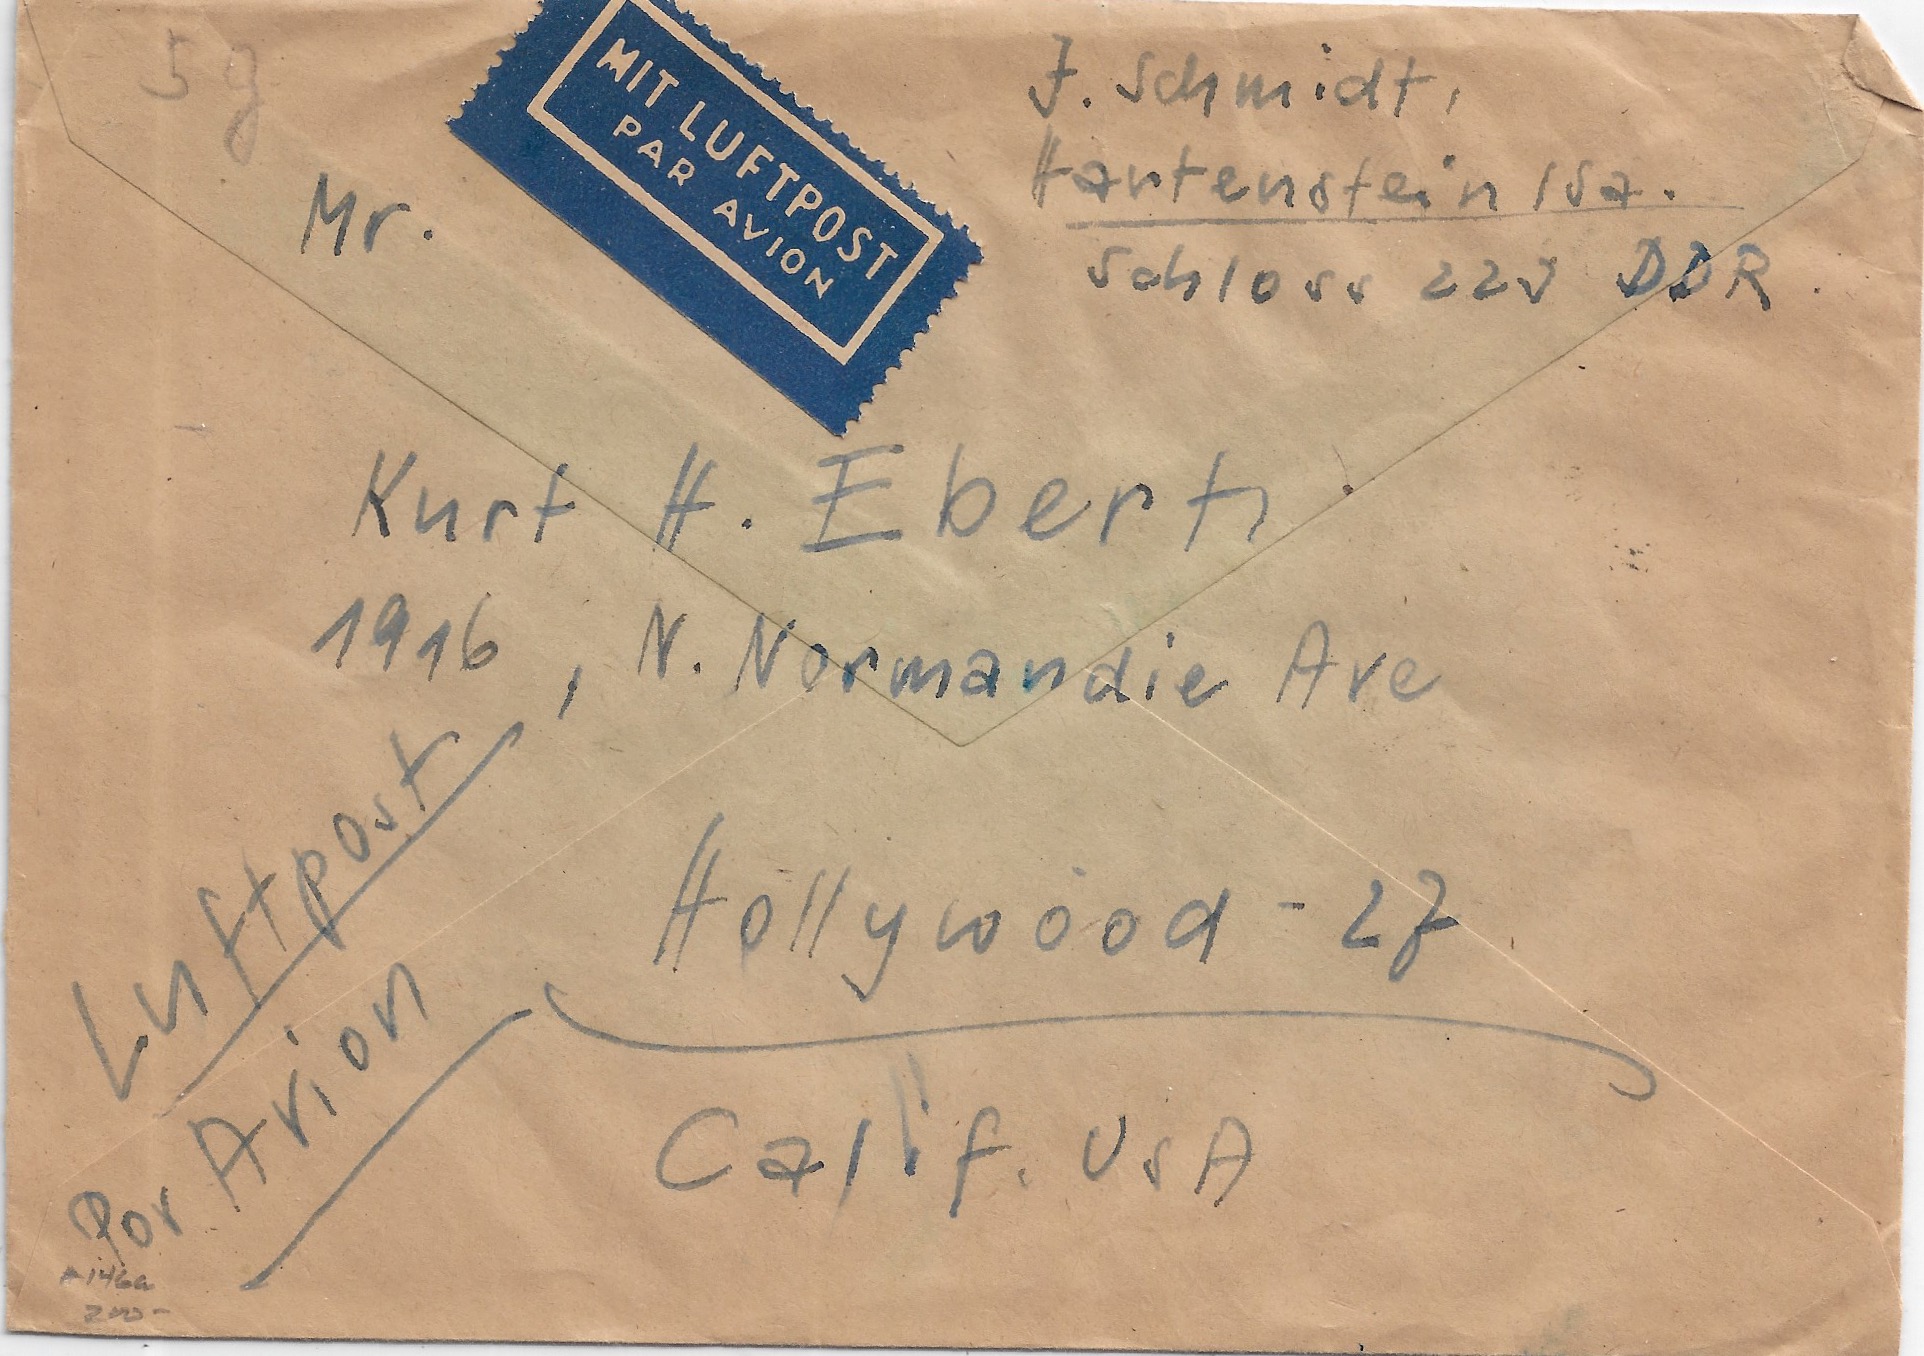 5 g
MIT LUFTPOST
PAR AVION
J. Schmidt,
Hartenstein / Sa.
Schloss 223 DDR.
Mr.
Kurt H. Ebert,
1916, N. Normandie Ave
Hollywood - 27
Calif. USA
Luftpost
Por Avion